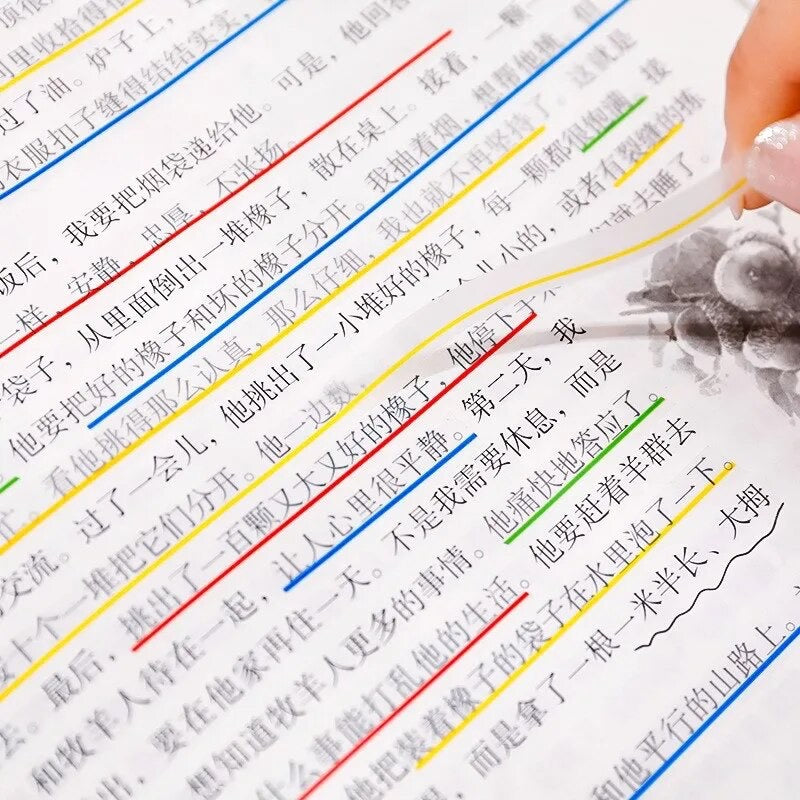 里收拾得
过了油。炉子上，
衣服扣子缝得结结实实，
饭后，我要把烟袋递给他。可是，他回答
一样，安静，忠厚，不张扬。
袋子，从里面倒出一堆橡子，散在桌上。接着，一颗一
他要把好的橡子和坏的橡子分开。我抽着烟，想帮他挑，但
看他挑得那么认真，那么仔细，我也就不再坚持了。这就是
交流。过了一会儿，他挑出了一小堆好的橡子，每一颗都很饱满。接
十个一堆把它们分开。他一边数，儿小的，或者有裂缝的拣
最后，挑出了一百颗又大又好的橡子，他停下手就去睡了。
和牧羊人待在一起，让人心里很平静。第二天，我
出，要在他家再住一天。不是我需要休息，而是
想知道牧羊人更多的事情。他痛快地答应了。
什么事能打乱他的生活。他要赶着羊群去
他把装着橡子的袋子在水里泡了一下。
，而是拿了一根一米半长、大拇
和他平行的山路上。